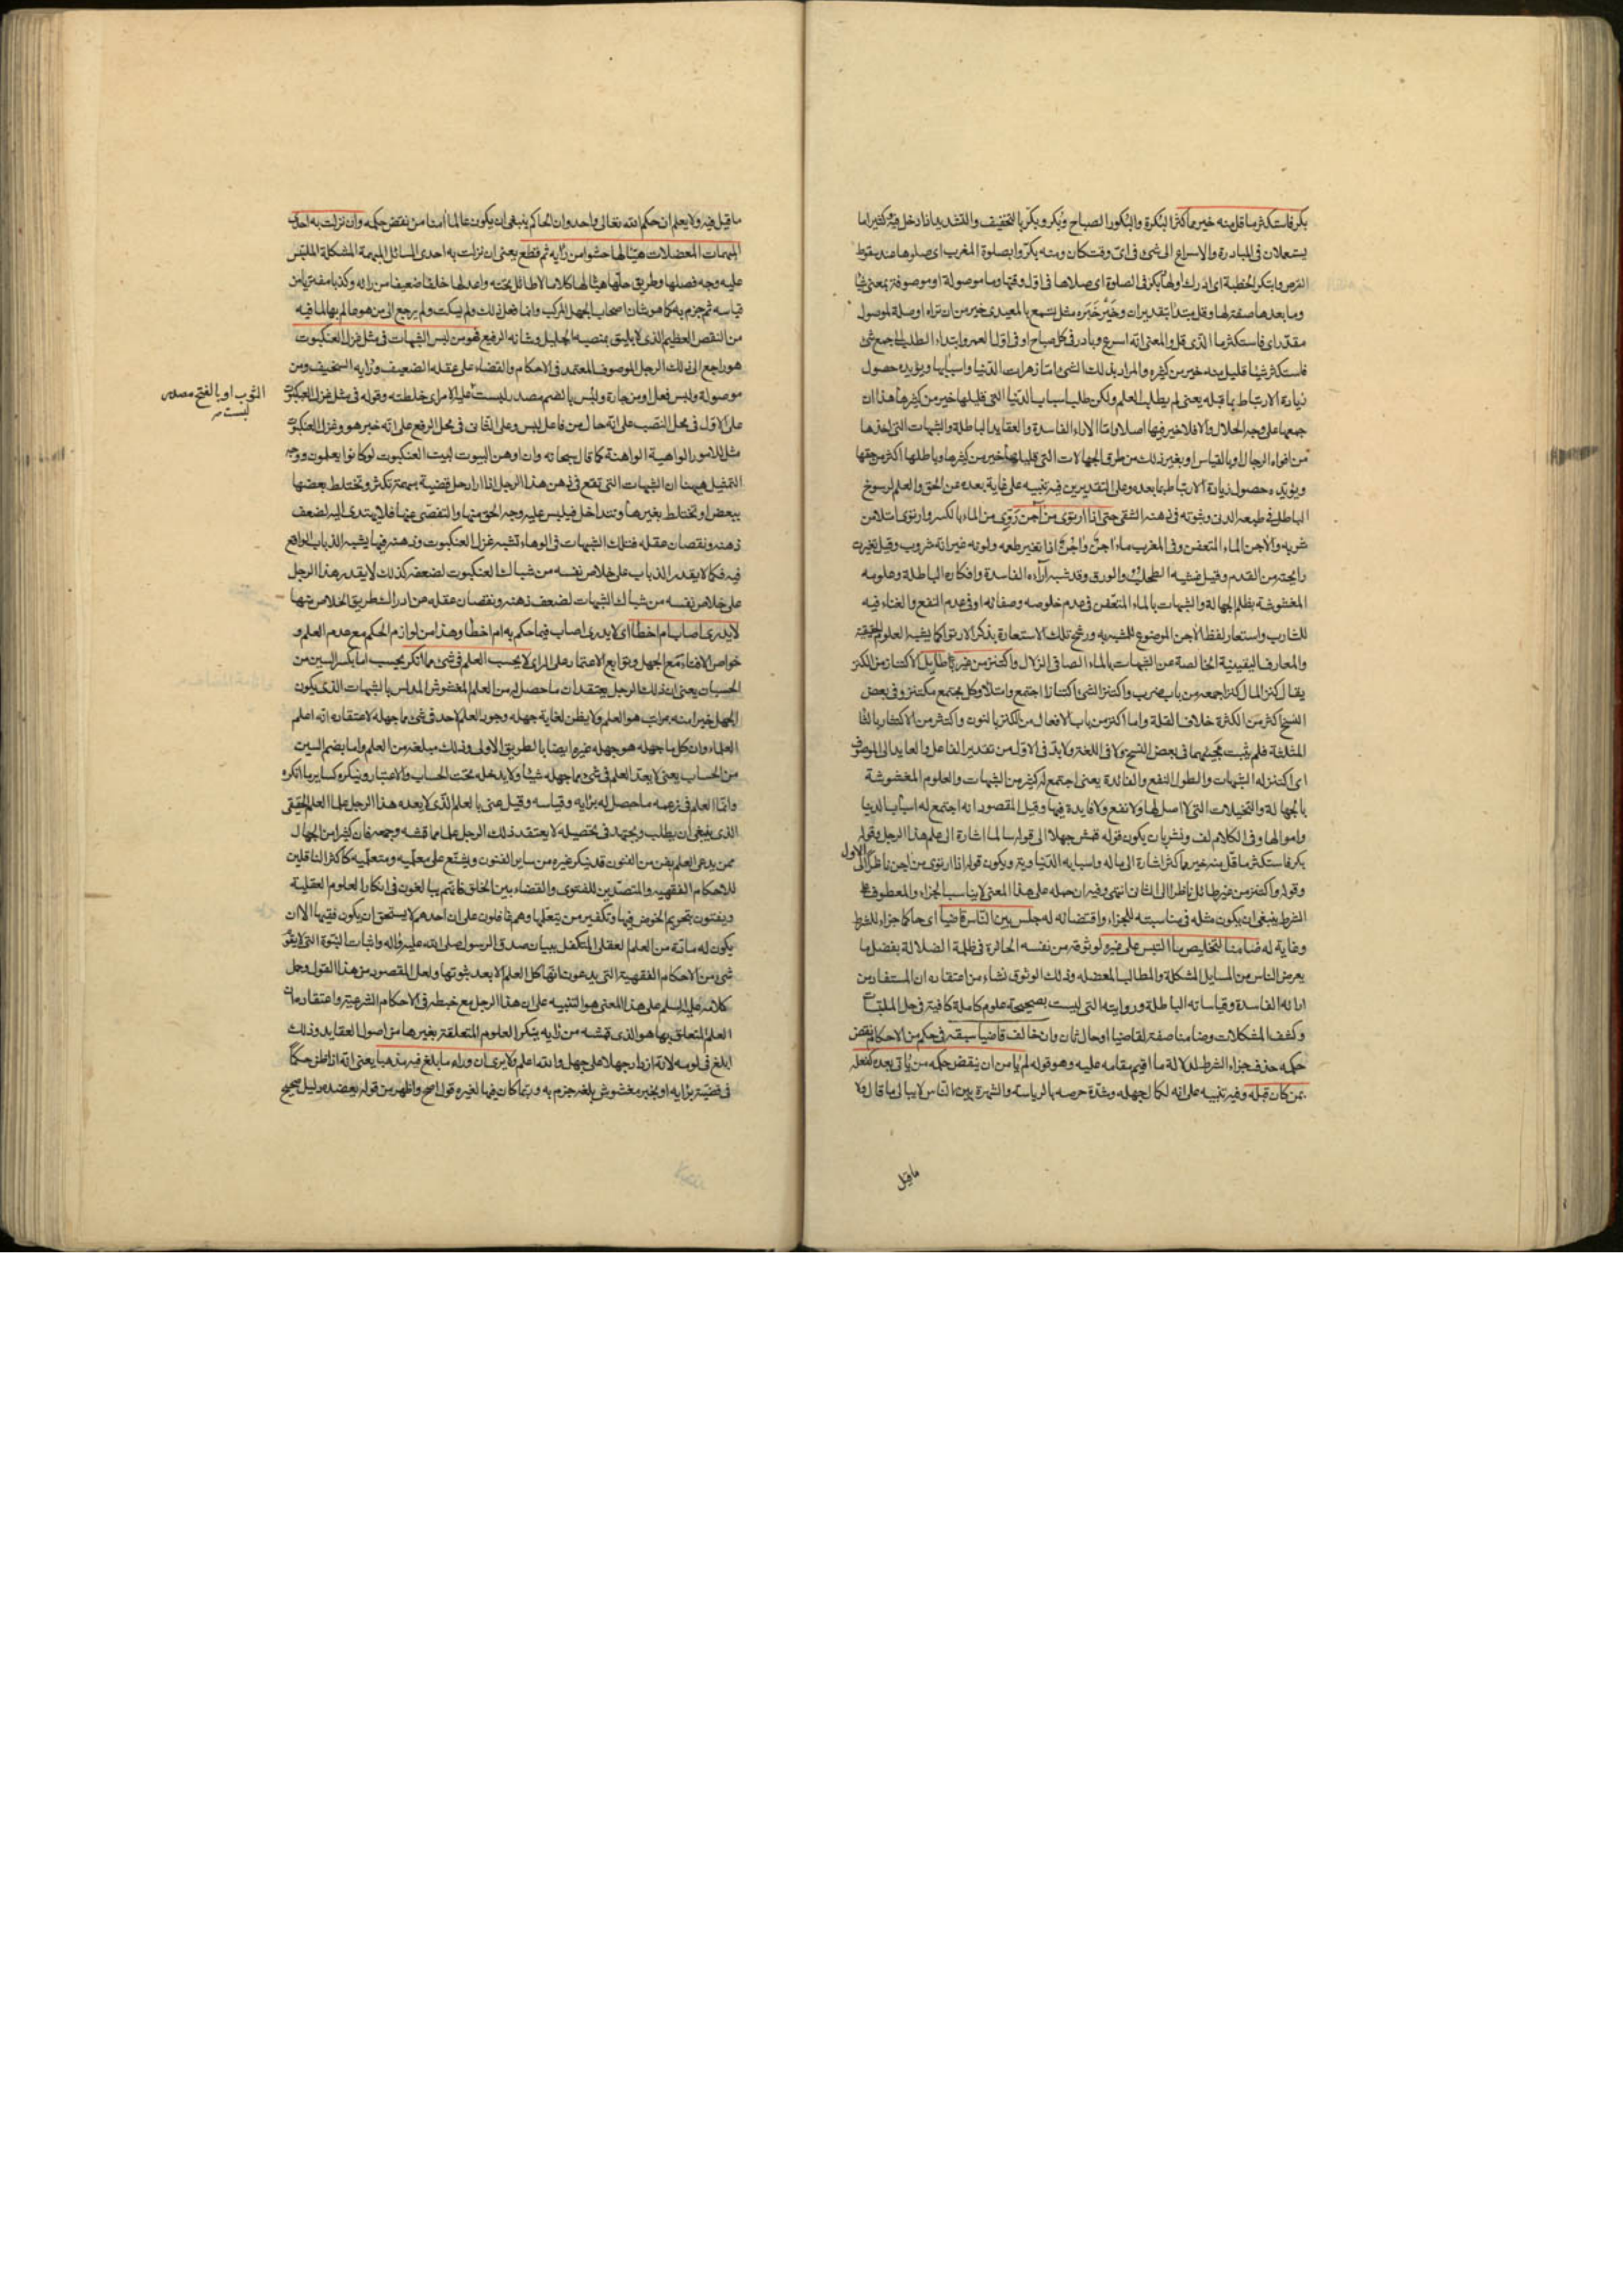 بكر فاستكثر ما قل منه خير مما كثر البكرة والبكور الصباح وبكر وبكّر بالتخفيف والتشديد اذا دخل فيه وكثيرا ما
يستعملان في المبادرة والاسراع الى شئ في اى وقت كان ومنه بكروا بصلوة المغرب اى صلوها عند سقوط
القرص وابتكر الخطبة اى ادرك اولها وبكر في الصلوة اى صلاها في اول وقتها وما موصولة او موصوفة بمعنى شيئا
وما بعدها صفة لها وقل مبتدا بتقدير ان وخير خبره مثل تسمع بالمعيدى خير من ان تراه او صلة لموصول
مقدر اى فاستكثر ما الذى قل والمعنى انه اسرع وبادر في كل صباح او في اول العمر وابتداء الطلب الى جمع شئ
فاستكثر شيئا قليل منه خير من كثيره والمراد بذلك الشئ اما زهرات الدنيا واسبابها ويؤيده حصول
زيادة الارتباط بما قبله يعنى لم يطلب العلم ولكن طلب اسباب الدنيا التى قليلها خير من كثيرها هذا ان
جمعها على وجه الحلال والا فلا خير فيها اصلا واما الاراء الفاسدة والعقايد الباطلة والشبهات التى اخذها
من افواه الرجال او بالقياس او بغير ذلك من طرق الجهالات التى قليلها خير من كثيرها وباطلها اكثر من حقها
ويؤيده حصول زيادة الارتباط بما بعده وعلى التقديرين فيه تنبيه على غاية بعده عن الحق والعلم لرسوخ
الباطل في طبعه الدنى وثبوته في ذهنه الشقى حتى اذا ارتوى من آجن روى من الماء بالكسر وارتوى امتلا من
شربه والآجن الماء المتعفن وفى المغرب ماء آجن واجن اذا تغير طعمه ولونه غير انه شروب وقيل تغيرت
رايحته من القدم وقيل غشيه الطحلب والورق وقد شبه آراءه الفاسدة وافكاره الباطلة وعلومه
المغشوشة بظلم الجهالة والشبهات بالماء المتعفن في عدم خلوصه وصفائه او في عدم النفع والغناء فيه
للشارب واستعار لفظ الآجن الموضوع للمشبه به ورشح تلك الاستعارة بذكر الارتواء كما يشبه العلوم الحقيقية
والمعارف اليقينية الخالصة عن الشبهات بالماء الصافى الزلال واكتنز من غير طايل الاكتناز من الكنز
يقال كنز المال كنزا جمعه من باب ضرب واكتنز الشئ اكتنازا اجتمع وامتلا وكل مجتمع مكتنز وفى بعض
النسخ اكثر من الكثرة خلاف القلة واما اكنز من باب الافعال من الكنز بالنون واكتثر من الاكتثار بالثا
المثلثة فلم يثبت مجيئهما في بعض النسخ ولا في اللغة ولابد في الاول من تقدير الفاعل والعايد الى الموصوف
اى اكتنز له الشبهات والطول النفع والفائدة يعنى اجتمع له كثير من الشبهات والعلوم المغشوشة
بالجهالة والتخيلات التى لا اصل لها ولا نفع ولا فايدة فيها وقيل المقصود انه اجتمع له اسباب الدنيا
واموالها وفى الكلام لف ونشر بان يكون قوله قمش جهلا الى قوله سالما اشارة الى علم هذا الرجل وقوله
بكر فاستكثر ما قل منه خير مما كثر اشارة الى ماله واسبابه الدنياوية ويكون قوله اذا ارتوى من اجن ناظرا الى الاول
وقوله واكتنز من غير طائل ناظرا الى الثانى انتهى وفيه ان حمله على هذا المعنى لا يناسب الجزاء والمعطوف على
الشرط ينبغى ان يكون مثله في مناسبته للجزاء واقتضائه له جلس بين الناس قاضيا اى حاكما جزاء للشرط
وغاية له ضامنا لتخليص ما التبس على غيره لوثوقه من نفسه الحائرة في ظلمة الضلالة بفصل ما
يعرض الناس من المسايل المشكلة والمطالب المعضله وذلك الوثوق نشاء من اعتقاده ان المستفاد من
ارائه الفاسدة وقياساته الباطلة ورواياته التى ليست بصحيحة علوم كاملة كافية في حل الملتبسات
وكشف المشكلات وضامنا صفة لقاضيا او حال ثان وان خالف قاضيا سبقه في حكم من الاحكام ونقض
حكمه حذف جزاء الشرط لدلالة ما اقيم مقامه عليه وهو قوله لم يامن ان ينقض حكمه من ياتى بعده كفعله
بمن كان قبله وفيه تنبيه على انه لكمال جهله وشدة حرصه بالرياسة والشهرة بين الناس لا يبالى ما قال ولا
ما قيل
ما قيل فيه ولا يعلم ان حكم الله تعالى واحد وان الحاكم ينبغى ان يكون عالما امنا من نقض حكمه وان نزلت به احدى
المبهمات المعضلات هيّا لها حشوا من رأيه ثم قطع يعنى ان نزلت به احدى المسائل المبهمة المشكلة الملتبس
عليه وجه فصلها وطريق حلها هيّا لها كلاما لا طائل تحته واعد لها خلقا ضعيفا من رائه وكذبا مفتريا من
قياسه ثم جزم به كما هو شان اصحاب الجهل المركب وانما فعل ذلك ولم يسكت ولم يرجع الى من هو عالم بها لما فيه
من النقص العظيم الذى لا يليق بمنصبه الجليل وشانه الرفيع فهو من لبس الشبهات في مثل غزل العنكبوت
هو راجع الى ذلك الرجل الموصوف المعتمد في الاحكام والقضاء على عقله الضعيف ورايه السخيف ومن
موصولة ولبس فعل او من جارة ولبس بالضم مصدر لبست عليه الامر اى خلطته وقوله في مثل غزل العنكبوت
الثوب او بالفتح مصدر
لبست
على الاول في محل النصب على انه حال من فاعل لبس وعلى الثانى في محل الرفع على انه خبر هو وغزل العنكبوت
مثل للامور الواهية الواهنة كما قال سبحانه وان اوهن البيوت لبيت العنكبوت لو كانوا يعلمون ووجه
التمثيل ههنا ان الشبهات التى تقع في ذهن هذا الرجل اذا اراد حل قضية مبهمة تكثر وتختلط بعضها
ببعض او تختلط بغيرها وتتداخل فيلبس عليه وجه الحق منها والتفصى عنها فلا يهتدى اليه لضعف
ذهنه ونقصان عقله فتلك الشبهات في الوهاء تشبه غزل العنكبوت وذهنه فيها يشبه الذباب الواقع
فيه فكما لا يقدر الذباب على خلاص نفسه من شباك العنكبوت لضعفه كذلك لا يقدر هذا الرجل
على خلاص نفسه من شباك الشبهات لضعف ذهنه ونقصان عقله عن ادراك طريق الخلاص منها
لا يدرى اصاب ام اخطا اى لا يدرى اصاب فيما حكم به ام اخطا وهذا من لوازم الحكم مع عدم العلم و
خواص الافتاء مع الجهل وتوابع الاعتماد على الراى لا يحسب العلم في شئ مما انكر يحسب اما بكسر السين من
الحسبان يعنى ان ذلك الرجل يعتقد ان ما حصل له من العلم المغشوش المدلس بالشبهات الذى يكون
الجهل خيرا منه بمراتب هو العلم ولا يظن لغاية جهله وجود العلم لاحد في شئ مما جهله لاعتقاده انه اعلم
العلماء وان كل ما جهله هو جهله غيره ايضا بالطريق الاولى وذلك مبلغه من العلم واما بضم السين
من الحساب يعنى لا يعد العلم في شئ مما جهله شيئا ولا يدخله تحت الحساب والاعتبار وينكره كساير ما انكره
وانما العلم في زعمه ما حصل له برايه وقياسه وقيل عنى بالعلم الذى لا يعده هذا الرجل علما العلم الحقيقى
الذى ينبغى ان يطلب ويجتهد في تحصيله لا يعتقد ذلك الرجل علما مما قمشه وجمعه فان كثيرا من الجهال
ممن يدعى العلم بفن من الفنون قد ينكر غيره من ساير الفنون ويشنع على معلميه ومتعلميه كاكثر الناقلين
للاحكام الفقهية والمتصدين للفتوى والقضاء بين الخلق فانهم يبالغون في انكار العلوم العقلية
ويفتون بتحريم الخوض فيها وتكفير من يتعلمها وهم غافلون على ان احدهم لا يستحق ان يكون فقيها الا ان
يكون له مادة من العلم العقلى المتكفل ببيان صدق الرسول صلى الله عليه واله واثبات النبوة التى لا يقوم
شئ من الاحكام الفقهية التى يدعون انها كل العلم الا بعد ثبوتها ولعل المقصود من هذا القول وحمل
كلامه عليه السلم على هذا المعنى هو التنبيه على ان هذا الرجل مع خبطه في الاحكام الشرعية واعتقاده ان
العلم المتعلق بها هو الذى قمشه من رأيه ينكر العلوم المتعلقة بغيرها من اصول العقايد وذلك
ابلغ في لومه لانه ازداد جهلا على جهل والله اعلم ولا يرى ان وراء ما بلغ فيه مذهبا يعنى انه اذا ظن حكما
في قضية برايه او بخبر مغشوش بلغه جزم به وربما كان فيها لغيره قول اصح واظهر من قوله يعضده دليل صحيح